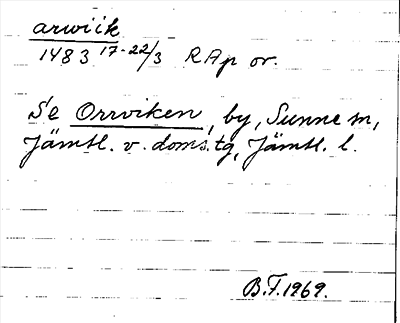 arwiik
1483 17-22/3 RAp or.
Se Orrviken, by, Sunne sn,
Jämtl. v. doms.tg, Jämtl. l.
B.F. 1969.